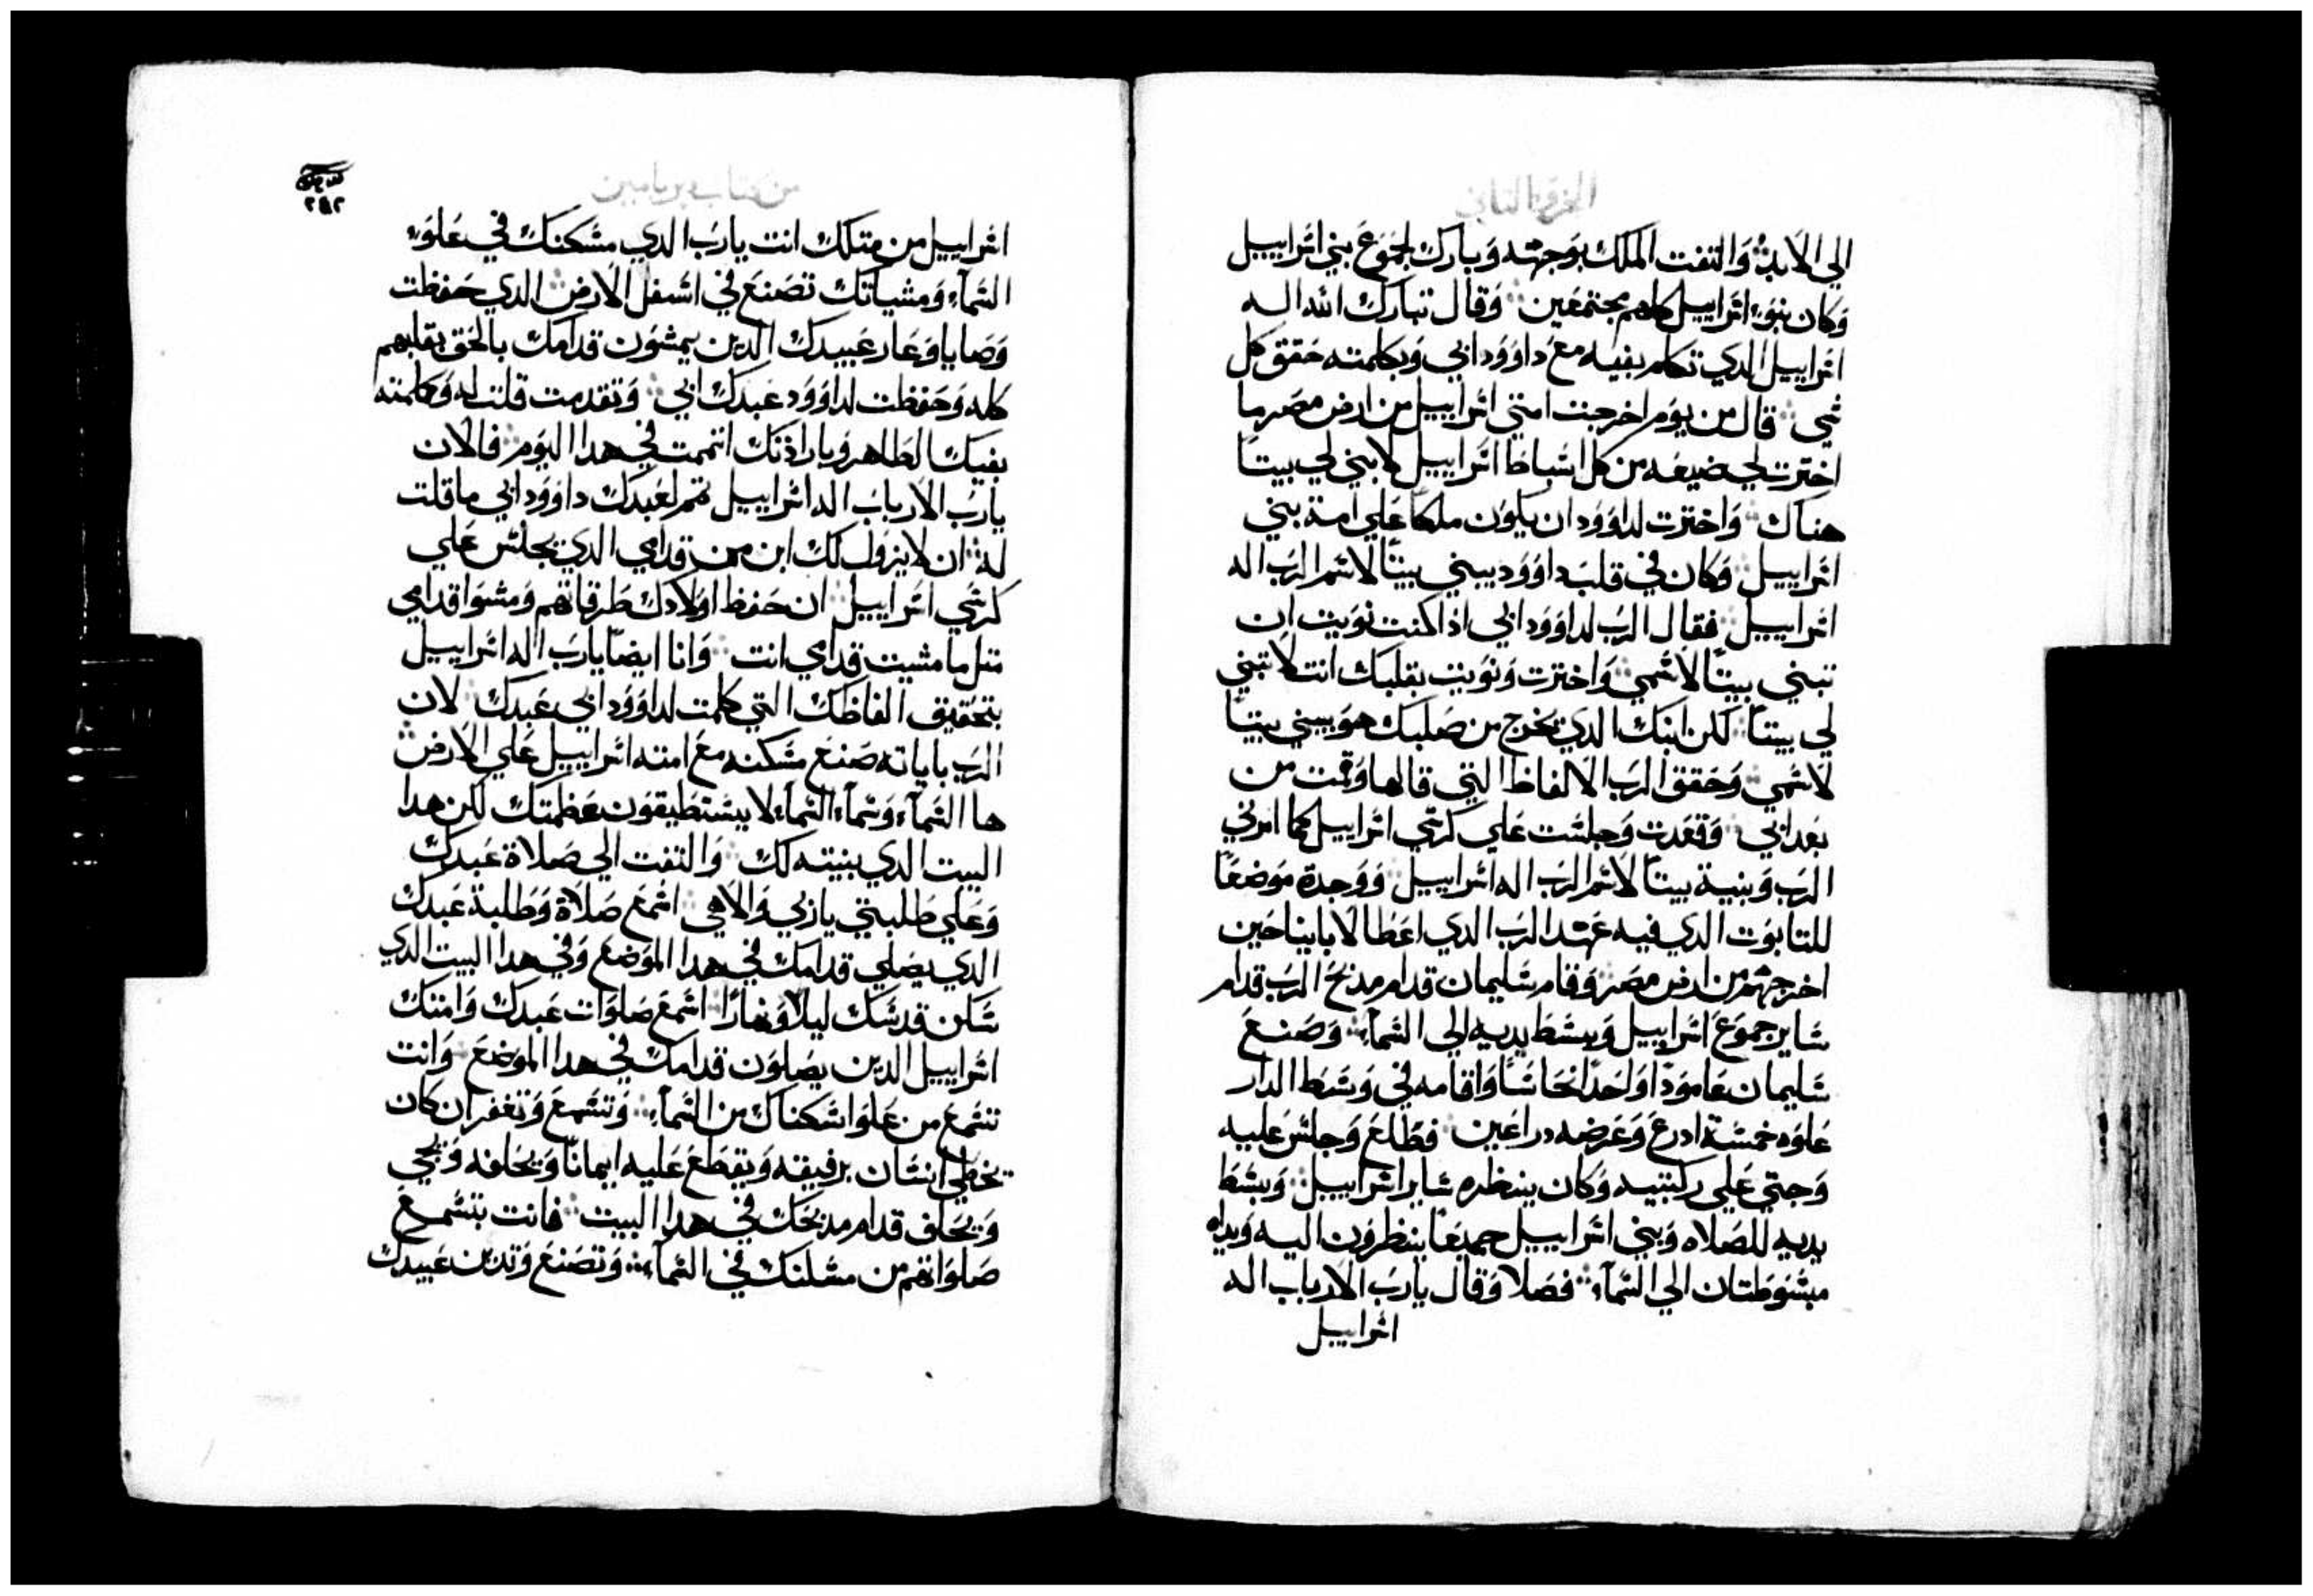 الجزو التاني
الي الابد وَالتفت الملك بوَجهه وَبارك لجموَع بني اسَراييل
وَكان بنوَا اسَراييل كلهم مجتمعَين وَقال تبارك الله اله
اسَراييل الدي تكلم بفيه معَ داوَوَد ابي وَبكلمته حَقق كل
شي قال من يوَم اخرجت امتي اسَراييل من ارض مصَر ما
اخترت لي ضيعه من كل اسَباط اسَراييل لابني لي بيتاً
هناك وَاخترت لداوَوَد ان يكوَن ملكاً عَلي امة بني
اسَراييل وَكان في قلب داوَوَد يبني بيتاً لاسَم الرَب اله
اسَراييل فقال الربَ لداوَوَد ابي اذا كنت نوَيت ان
تبني بيتاً لاسَمي وَاخترت وَنوَيت بقلبك انت لا تبني
لي بيتاً لكن ابنك الدي يخرج من صَلبك هوَ يبني بيتاً
لاسَمي وَحَقق الرَب الالفاظ التي قالها وَقمت من
بعَد ابي وَقعَدت وَجلسَت عَلي كرسَي اسَراييل كما امرني
الرَب وَبنية بيتاً لاسَم الرَب اله اسَراييل وَوَجدة موَضعَاً
للتابوَت الدي فيه عَهد الرَب الدي اعَطا لاباينا حَين
اخرجهم من ارض مصَر وَقام سَليمان قدام مدبحَ الرَب قدام
سَاير جموَعَ اسَراييل وَبسَط يديه الي السَمآء وَصَنعَ
سَليمان عَاموَداً وَاحَداً نحَاسَاً وَاقامه في وَسَط الدار
عَلوَه خمسَة ادرعَ وَعَرضه دراعَين فطَلعَ وَجلسَ عَليه
وَجتي عَلي ركبتيه وَكان ينظره سَاير اسَراييل وَبسَط
يديه للصَلاه وَبني اسَراييل جميعَاً ينظروَن اليه وَيداه
مبسَوَطتان الي السَمآء فصَلا وَقال يارَب الارباب اله
اسَراييل
من كتاب بريامين
٢٩٢
اسَراييل من متلك انت يارَب الدي مسَكنك في عَلوَ
السَمآء وَمشياتك تصَنعَ في اسَفل الارض الدي حَفظت
وَصَايا وَعَار عَبيدك الدين يمشوَن قدامك بالحَق بقلبهم
كله وَحَفظت لداوَوَد عَبدك ابي وَتقدمت قلت له وَكلمته
بفيك الطاهر وَباراذتك اتممت في هدا اليوَم فالان
يارَب الارباب اله اسَراييل تمم لعَبدك داوَوَد ابي ما قلت
له ان لا يزوَل لك ابن من قدامي الدي يجلسَ عَلي
كرسَي اسَراييل ان حَفظ اوَلادك طَرقاتهم وَمشوَا قدامي
متل ما مشيت قدامي انت وَانا ايضاً يارَب اله اسَراييل
بتحَقيق الفاظك التي كلمت لداوَوَد ابي عَبدك لان
الرَب باياته صَنعَ مسَكنه معَ امته اسَراييل عَلي الارض
ها السَمآء وَسَمآء السَمآء لا يسَتطيقوَن عَظمتك لكن هدا
البيت الدي بنيته لك وَالتفت الي صَلاة عَبدك
وَعَلي طَلبتي ياربي وَالاهي اسَمعَ صَلاة وَطَلبة عَبدك
الدي يصَلي قدامك في هدا الموَضعَ وَفي هدا البيت الدي
سَكن قدسَك ليلاً وَنهاراً اسَمعَ صَلوَات عَبدك وَامتك
اسَراييل الدين يصَلوَن قدامك في هدا الموَضعَ وَانت
تسَمعَ من عَلوَ اسَكناك من السَمآء وَتسَمعَ وَتغفر ان كان
يخطي انسَان برفيقه وَيقطعَ عَليه ايماناً وَيحَلفه وَيجي
وَيحَلف قدام مدبحَك في هدا البيت فانت بتسَمعَ
صَلوَاتهم من مسَكنك في السَمآء وَتصَنعَ وَتدين عَبيدك